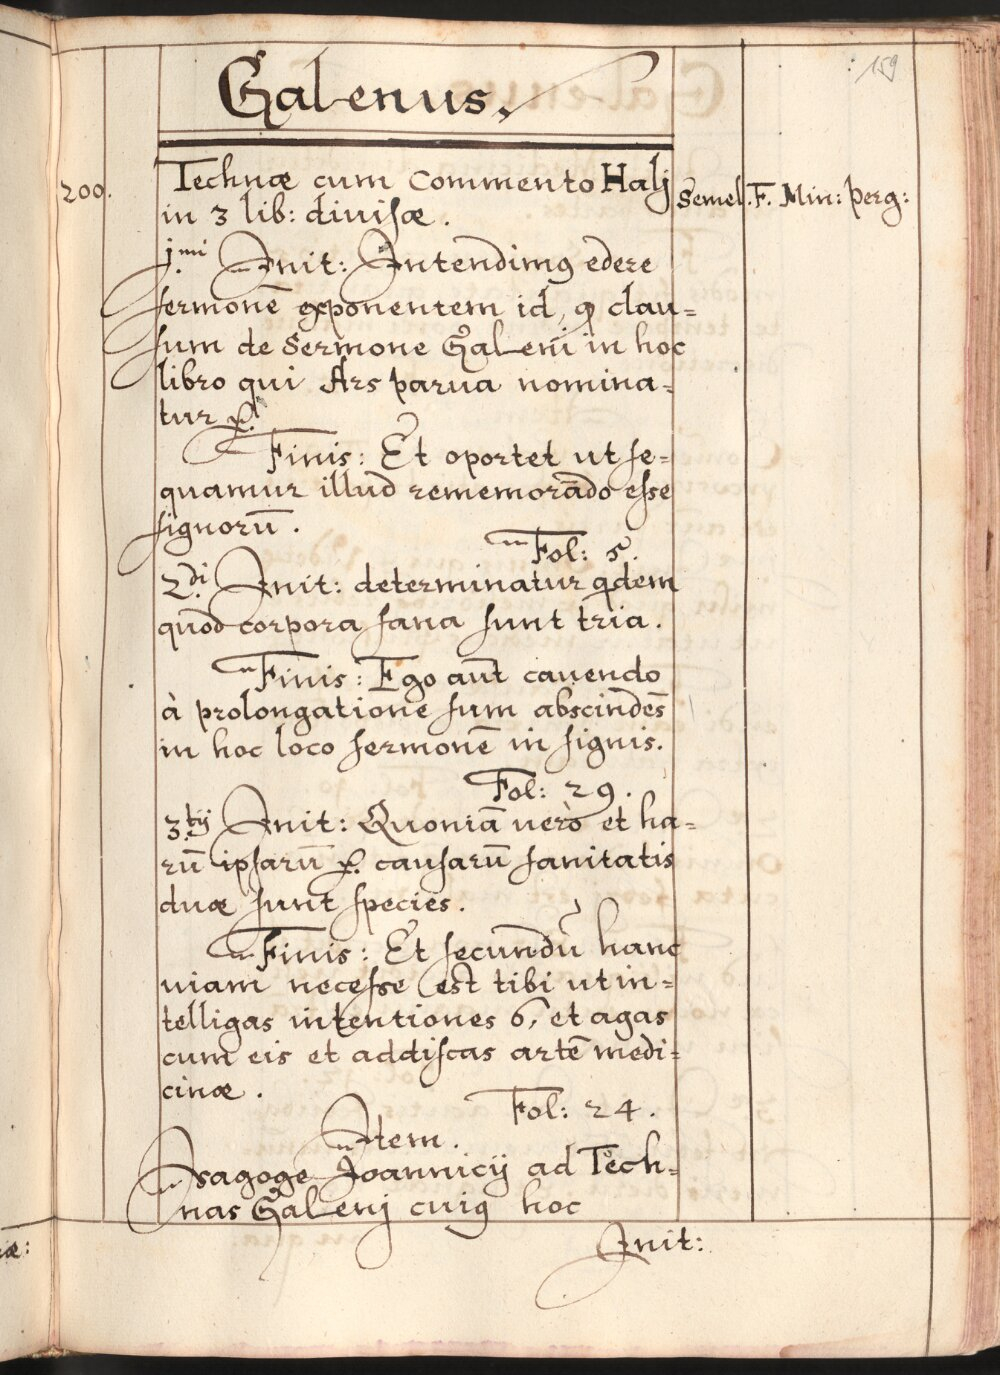 159
Galenus.
200. Technæ cum Commento Halj Semel. F. Min: perg:
in 3 lib: diuisæ.
1.mi Init: Intendimꝰ edere
sermonē exponentem id, ꝙ clau=
sum de Sermone Galeni in hoc
libro qui Ars parua nomina=
tur ꝛc.
Finis: Et oportet ut se=
quamur illud rememorādo esse
signorū.
Fol: 5.
2.di Init: determinatur qdem
quod corpora sana sunt tria.
Finis: Ego aut̄ cauendo
à prolongatione sum abscindēs
in hoc loco sermonē in signis.
Fol: 29.
3.tij Init: Quoniā uerò et ha=
rū ipsarū ꝛc. causarū sanitatis
duæ sunt species.
Finis: Et secundū hanc
uiam necesse est tibi ut in=
telligas intentiones 6, et agas
cum eis et addiscas artē medi=
cinæ.
Fol: 24.
Item.
Isagoge Joannicij ad Tech=
nas Galenj cuiꝰ hoc
Init:
æ: